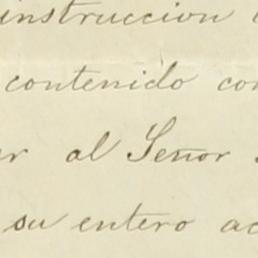 instruccion
contenido con
er al Señor
su entero ac